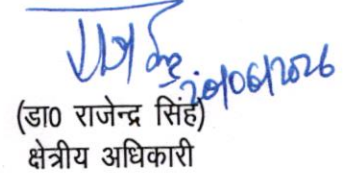 राजेन्द्र
20/06/2026
(डा0 राजेन्द्र सिंह)
क्षेत्रीय अधिकारी